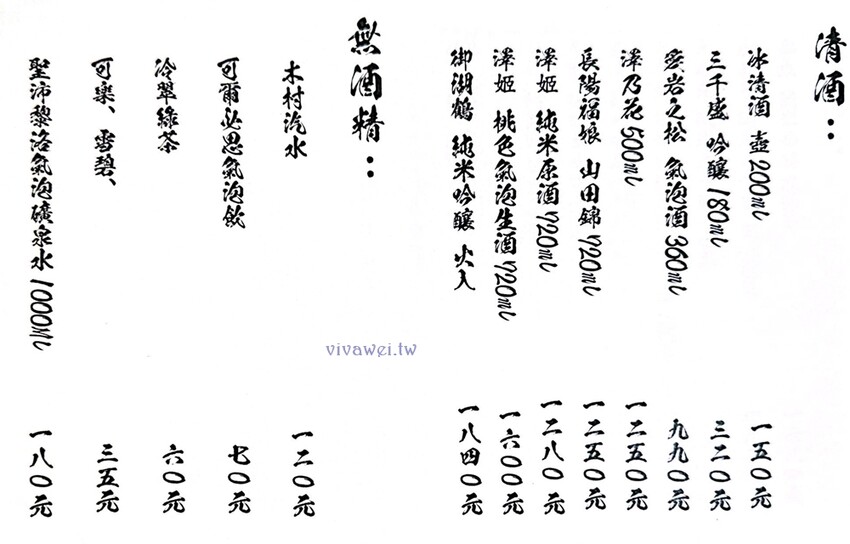 清酒：
冰清酒 壺 200ml 一五0元
三千盛 吟釀 180ml 三二0元
愛岩之松 氣泡酒 360ml 九九0元
澤乃花 500ml 一二五0元
長陽福娘 山田錦 720ml 一二五0元
澤姬 純米原酒 720ml 一二八0元
澤姬 桃色氣泡生酒 720ml 一六00元
御湖鶴 純米吟釀 火入 一八四0元
無酒精：
木村汽水 一二0元
可爾必思氣泡飲 七0元
冷翠綠茶 六0元
可樂、雪碧、 三五元
聖沛黎洛氣泡礦泉水 1000ml 一八0元
vivawei.tw